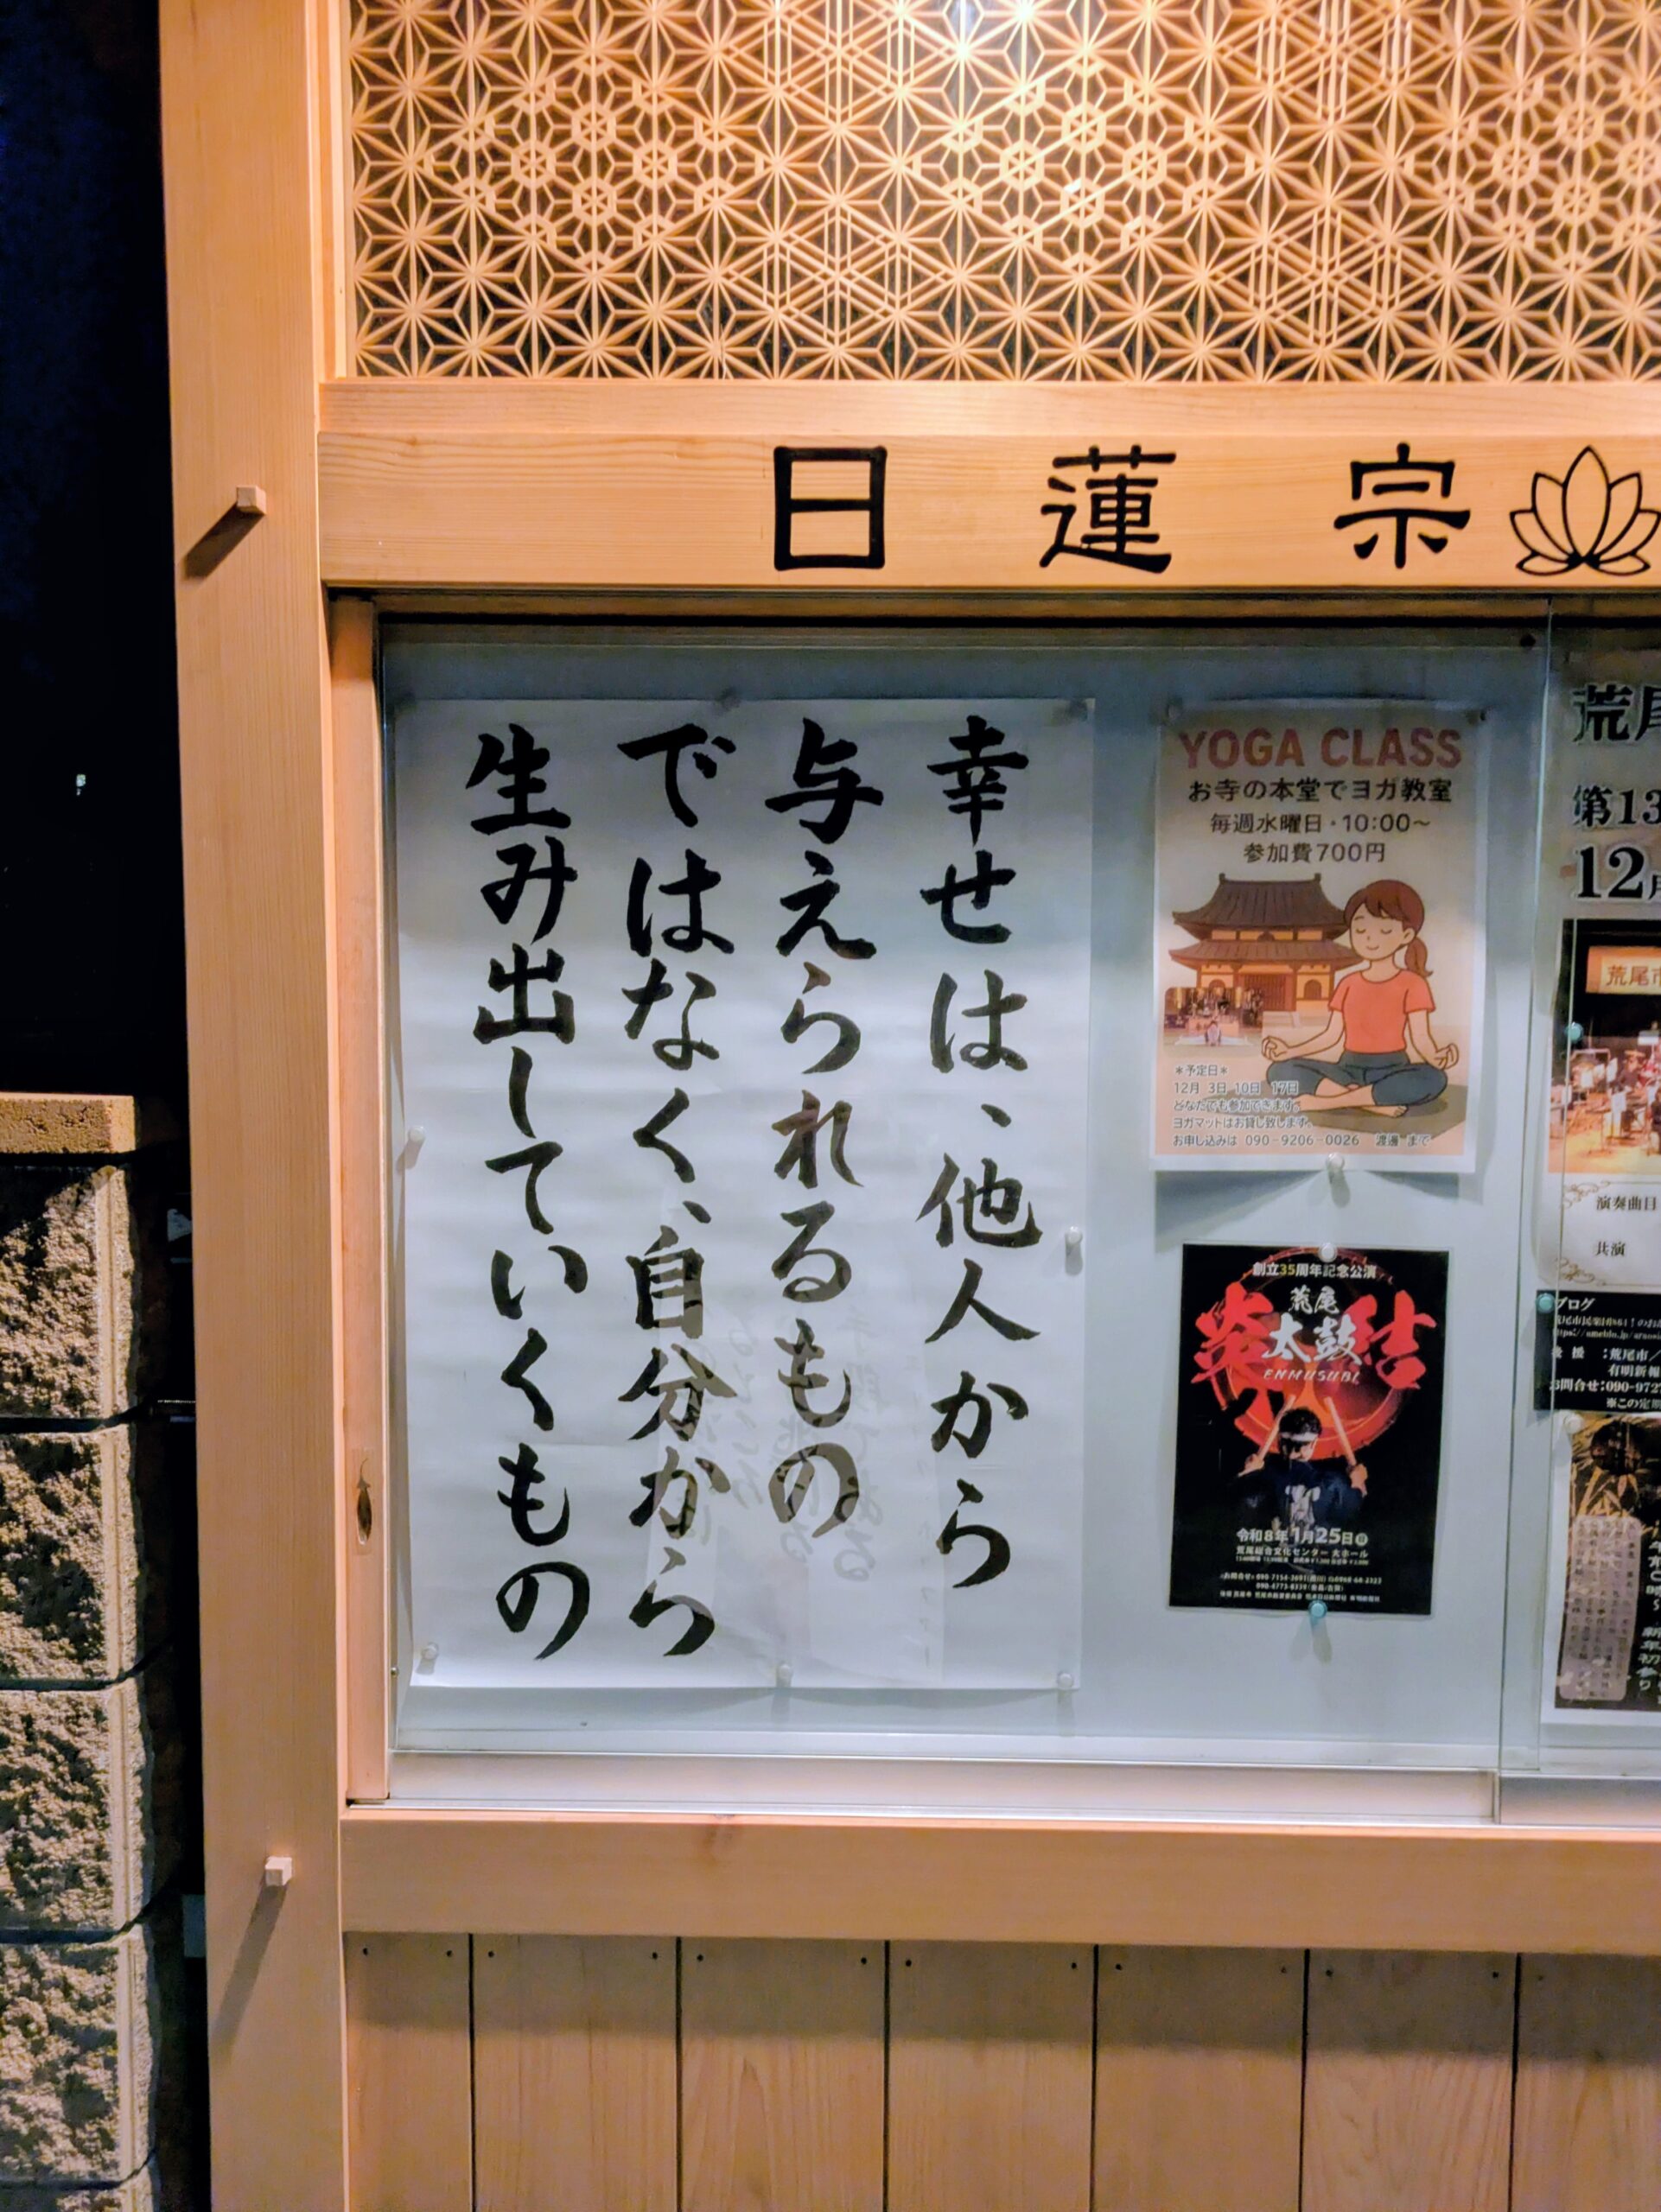 日蓮宗
幸せは、他人から
与えられるもの
ではなく、自分から
生み出していくもの
YOGA CLASS
お寺の本堂でヨガ教室
毎週水曜日・10:00～
参加費700円
＊予定日＊
12月 3日 10日 17日
どなたでも参加できます。
ヨガマットはお貸し致します。
お申し込みは 090-9206-0026 渡邊 まで
創立35周年記念公演
荒尾
炎太鼓結
ENMUSUBI
令和8年1月25日㊐
荒尾総合文化センター 大ホール
荒尾
第13
12月
荒尾市
演奏曲目
共演
ブログ
後援：荒尾市／
有明新報
お問合せ：090-972
※この定期